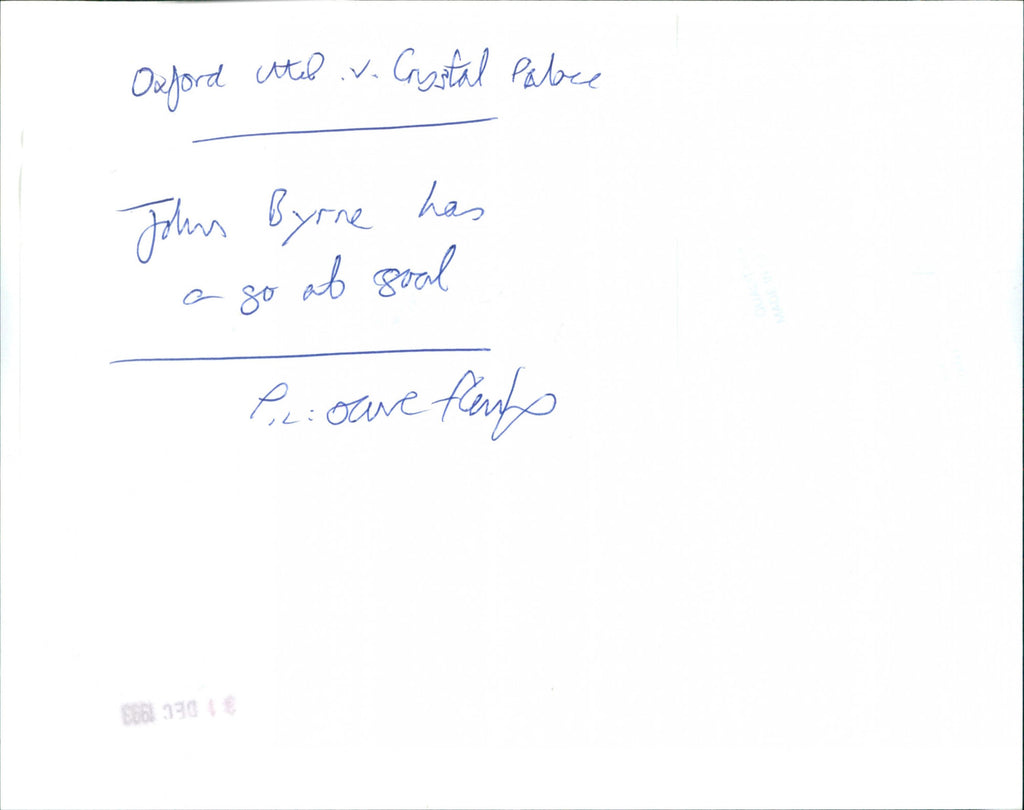 Oxford Utd .v. Crystal Palace
John Byrne has
a go at goal
Pic: Dave
31 DEC 1993